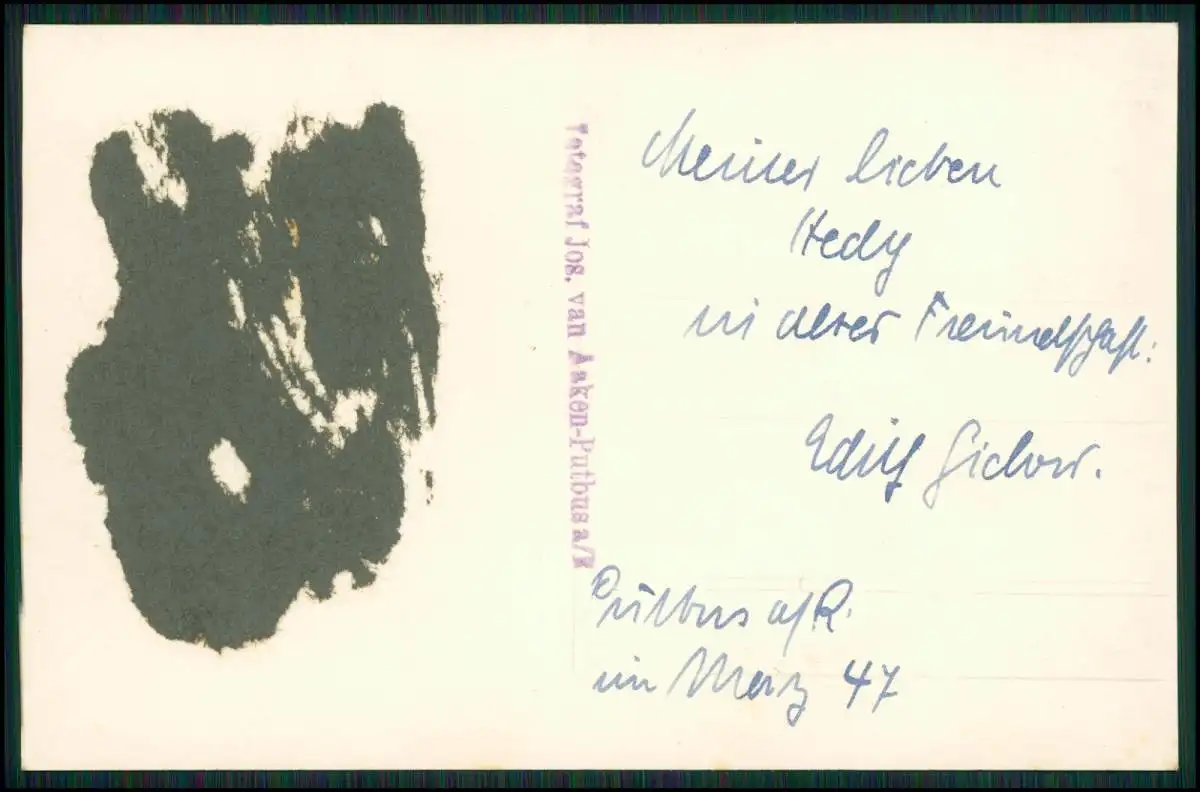 Fotograf Jos. van Aaken-Putbus a/R
Meiner lieben
Hedy
in alter Freundschaft.
Edith
Putbus a/R.
im März 47